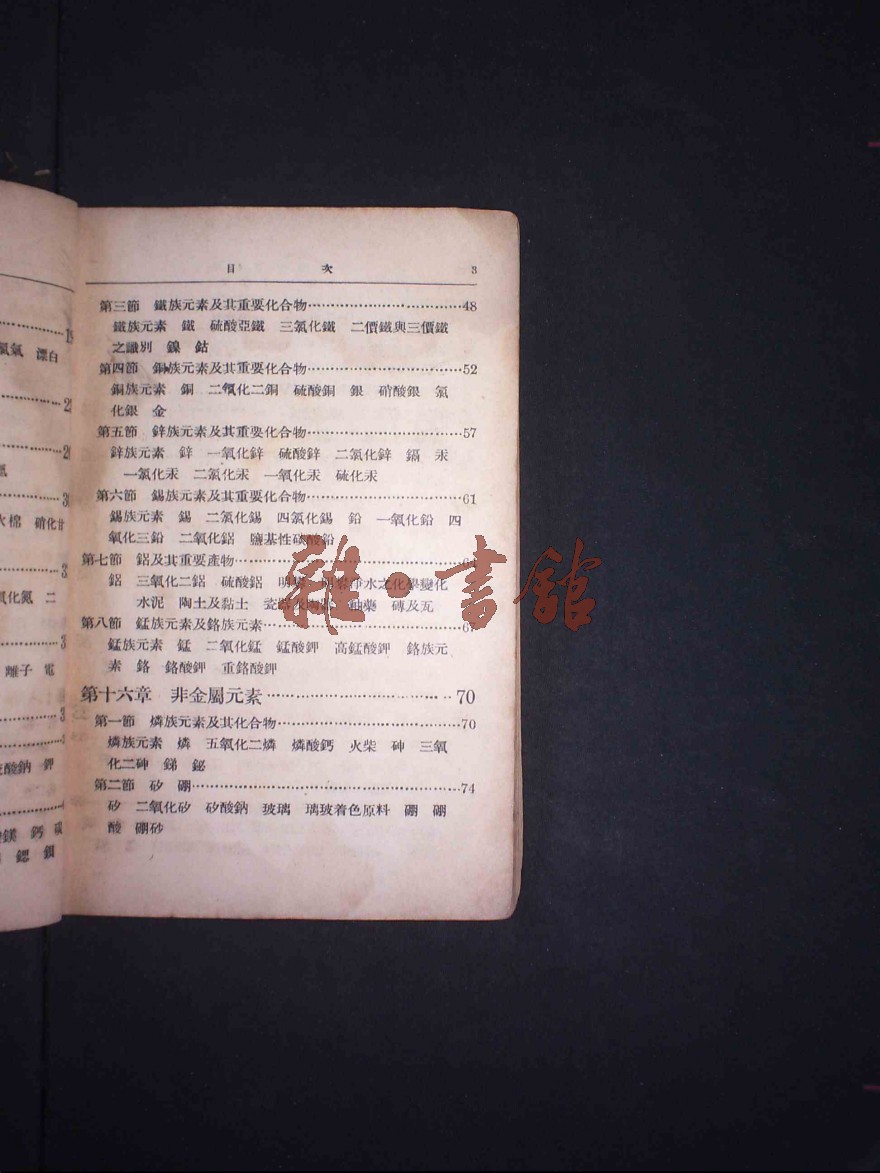 目次 3
第三節 鐵族元素及其重要化合物 48
鐵族元素 鐵 硫酸亞鐵 三氯化鐵 二價鐵與三價鐵
之識別 鎳 鈷
第四節 銅族元素及其重要化合物 52
銅族元素 銅 二氧化二銅 硫酸銅 銀 硝酸銀 氯
化銀 金
第五節 鋅族元素及其重要化合物 57
鋅族元素 鋅 一氧化鋅 硫酸鋅 二氯化鋅 鎘 汞
一氯化汞 二氯化汞 一氧化汞 硫化汞
第六節 錫族元素及其重要化合物 61
錫族元素 錫 二氯化錫 四氯化錫 鉛 一氧化鉛 四
氧化三鉛 二氧化鉛 鹽基性碳酸鉛
第七節 鋁及其重要產物
鋁 三氧化二鋁 硫酸鋁 明礬 明礬淨水之化學變化
水泥 陶土及黏土 瓷器及陶器 釉藥 磚及瓦
第八節 錳族元素及鉻族元素 67
錳族元素 錳 二氧化錳 錳酸鉀 高錳酸鉀 鉻族元
素 鉻 鉻酸鉀 重鉻酸鉀
第十六章 非金屬元素 70
第一節 燐族元素及其化合物 70
燐族元素 燐 五氧化二燐 燐酸鈣 火柴 砷 三氧
化二砷 銻 鉍
第二節 矽 硼 74
矽 二氧化矽 矽酸鈉 玻璃 璃玻着色原料 硼 硼
酸 硼砂
氯氣 漂白
火棉 硝化甘
氧化氮 二
離子 電
硫酸鈉 鉀
鎂 鈣
鍶 鋇
雜·書館